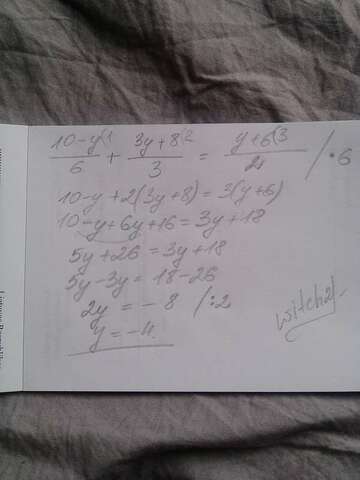 (10-y(1)/6 + (3y+8(2)/3 = (y+6(3)/2 /·6
10-y+2(3y+8)=3(y+6)
10-y+6y+16=3y+18
5y+26=3y+18
5y-3y=18-26
2y=-8 /:2
y=-4
witch2